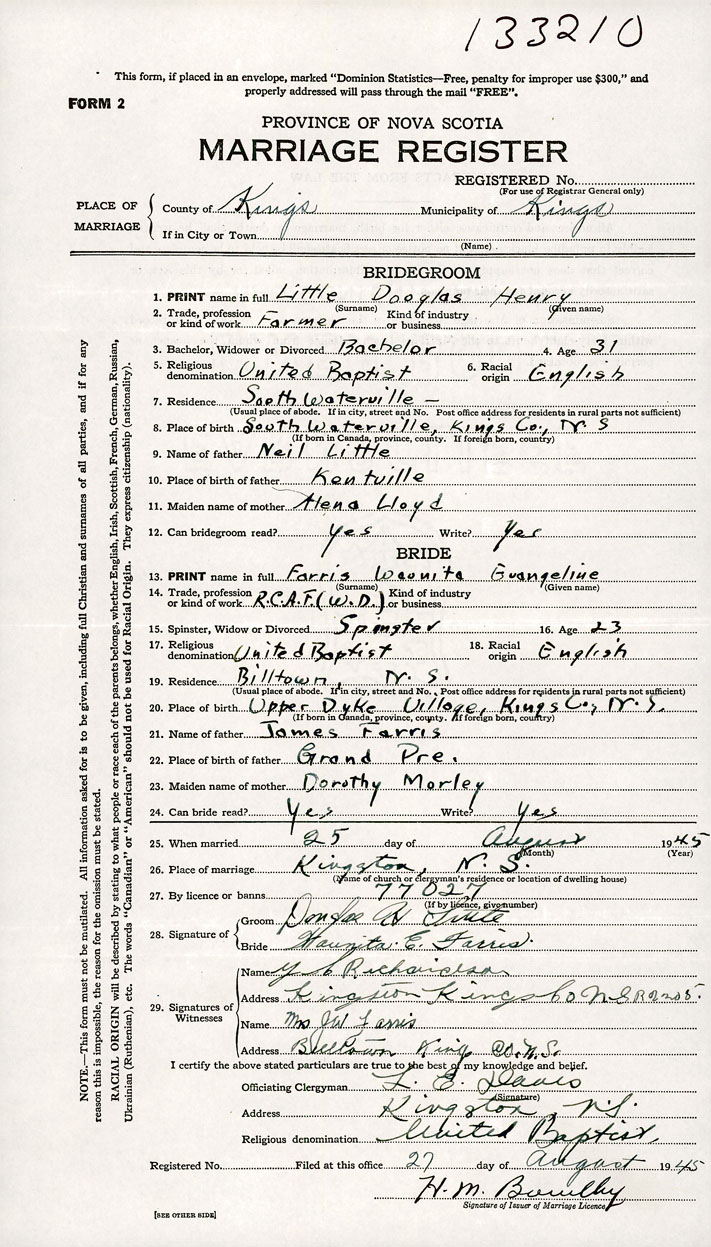 133210
This form, if placed in an envelope, marked "Dominion Statistics—Free, penalty for improper use $300," and
properly addressed will pass through the mail "FREE".
FORM 2
PROVINCE OF NOVA SCOTIA
MARRIAGE REGISTER
REGISTERED No.
(For use of Registrar General only)
PLACE OF MARRIAGE
County of Kings Municipality of Kings
If in City or Town
(Name)
BRIDEGROOM
1. PRINT name in full Little Douglas Henry
(Surname) (Given name)
2. Trade, profession or kind of work Farmer Kind of industry or business
3. Bachelor, Widower or Divorced Bachelor 4. Age 31
5. Religious denomination United Baptist 6. Racial origin English
7. Residence South Waterville —
(Usual place of abode. If in city, street and No. Post office address for residents in rural parts not sufficient)
8. Place of birth South Waterville, Kings Co., N. S
(If born in Canada, province, county. If foreign born, country)
9. Name of father Neil Little
10. Place of birth of father Kentville
11. Maiden name of mother Alena Lloyd
12. Can bridegroom read? Yes Write? Yes
BRIDE
13. PRINT name in full Farris Waunita Evangeline
(Surname) (Given name)
14. Trade, profession or kind of work R.C.A.F. (W.D.) Kind of industry or business
15. Spinster, Widow or Divorced Spinster 16. Age 23
17. Religious denomination United Baptist 18. Racial origin English
19. Residence Billtown, N. S.
(Usual place of abode. If in city, street and No. Post office address for residents in rural parts not sufficient)
20. Place of birth Upper Dyke Village, Kings Co., N. S.
(If born in Canada, province, county. If foreign born, country)
21. Name of father James Farris
22. Place of birth of father Grand Pre.
23. Maiden name of mother Dorothy Morley
24. Can bride read? Yes Write? Yes
25. When married 25 day of August 1945
(Month) (Year)
26. Place of marriage Kingston, N. S.
(Name of church or clergyman's residence or location of dwelling house)
27. By licence or banns 77027
(If by licence, give number)
28. Signature of
Groom Douglas H Little
Bride Waunita E. Farris.
29. Signatures of Witnesses
Name Richardson
Address Kingston Kings Co N S R R 2
Name Mrs J W Farris
Address Billtown King Co. N. S.
I certify the above stated particulars are true to the best of my knowledge and belief.
Officiating Clergyman L. E. Davis
(Signature)
Address Kingston, N.S.
Religious denomination United Baptist.
Registered No. Filed at this office 27 day of August 1945
H. M.
Signature of Issuer of Marriage Licence
[SEE OTHER SIDE]
NOTE.—This form must not be mutilated. All information asked for is to be given, including full Christian and surnames of all parties, and if for any
reason this is impossible, the reason for the omission must be stated.
RACIAL ORIGIN will be described by stating to what people or race each of the parents belongs, whether English, Irish, Scottish, French, German, Russian,
Ukrainian (Ruthenian), etc. The words "Canadian" or "American" should not be used for Racial Origin. They express citizenship (nationality).